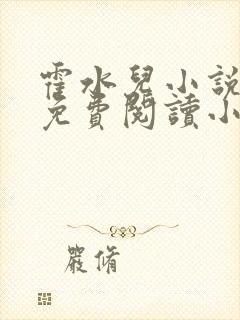 霍水兒小說
免費閱讀小
嚴脩